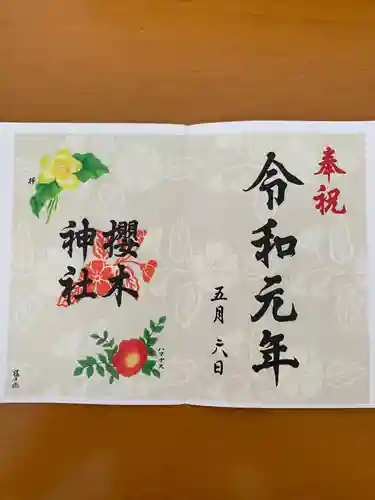 奉祝
令和元年
五月六日
櫻木
神社
ハマナス